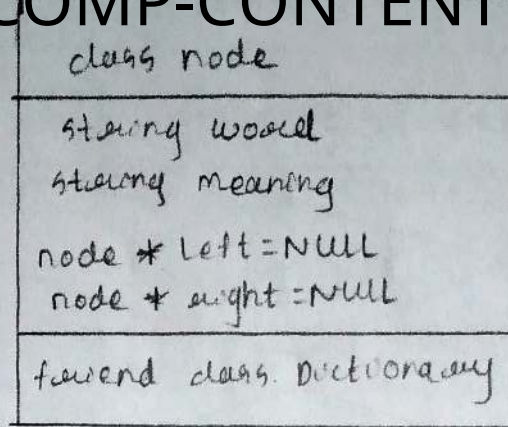 COMP-CONTENT
class node
string word
string meaning
node * left = NULL
node * right = NULL
friend class Dictionary